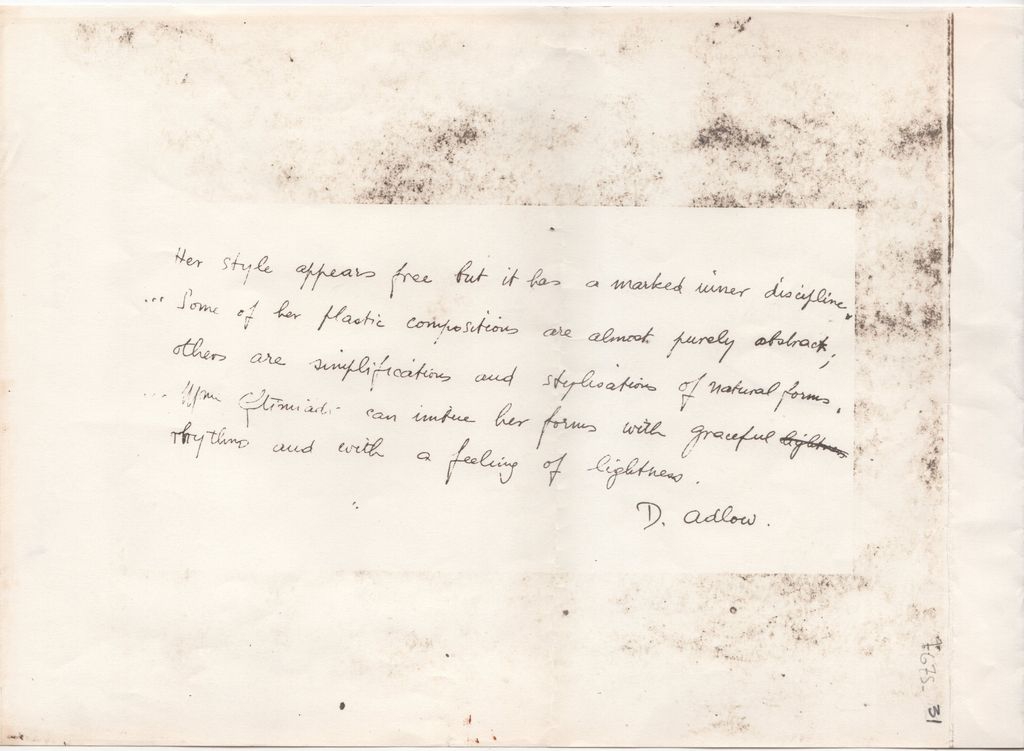 Her style appears free but it has a marked inner discipline.
... Some of her plastic compositions are almost purely abstract;
others are simplifications and stylisations of natural forms.
... can imbue her forms with graceful lightness
rhythms and with a feeling of lightness.
D. Adlow.
31